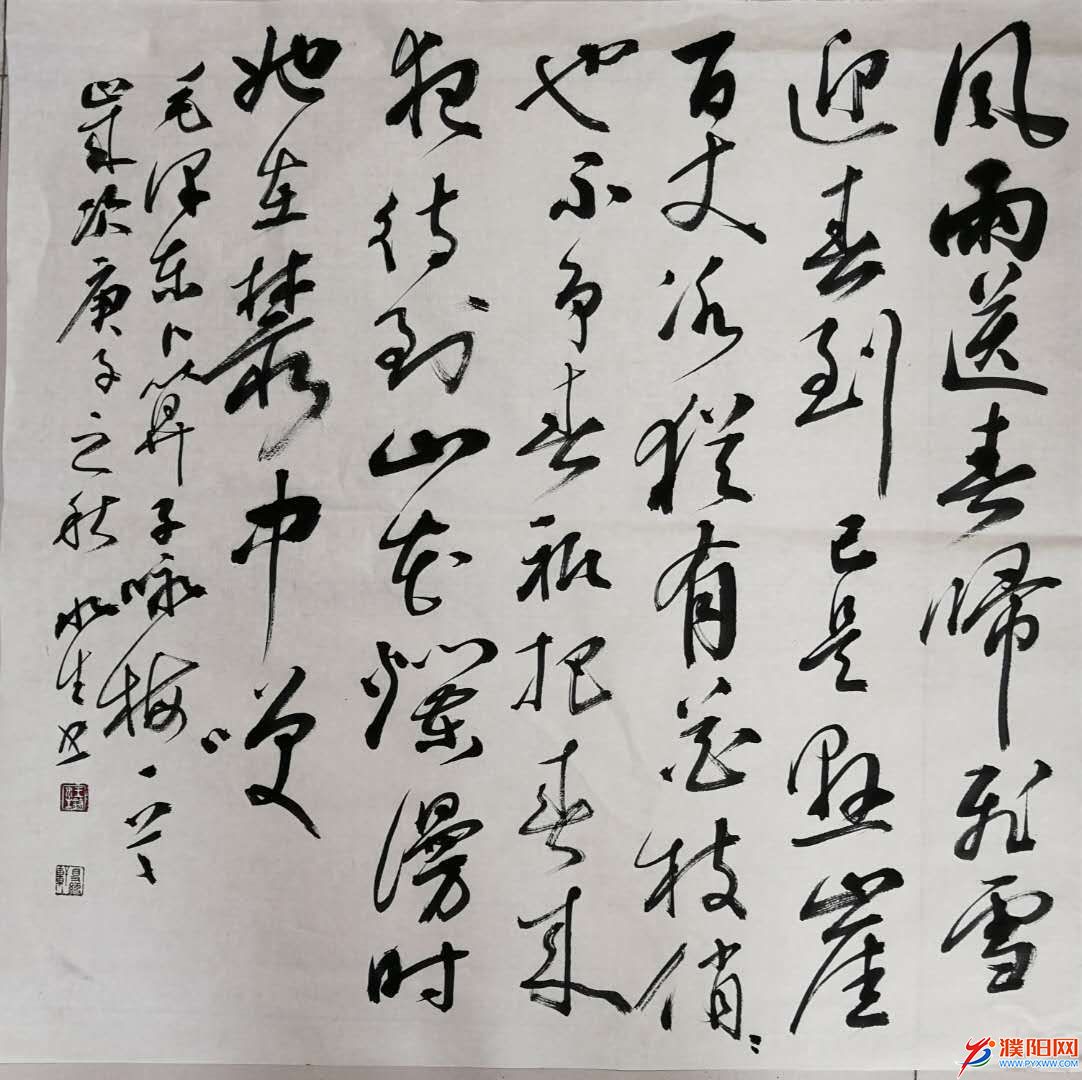 風雨送春歸飛雪
迎春到已是懸崖
百丈冰猶有花枝俏〻
也不争春祇把春来
报待到山花爛漫时
她在叢中笑
毛泽东卜算子咏梅一首
歲次庚子之秋 永生书
濮阳网
WWW.PYXWW.COM